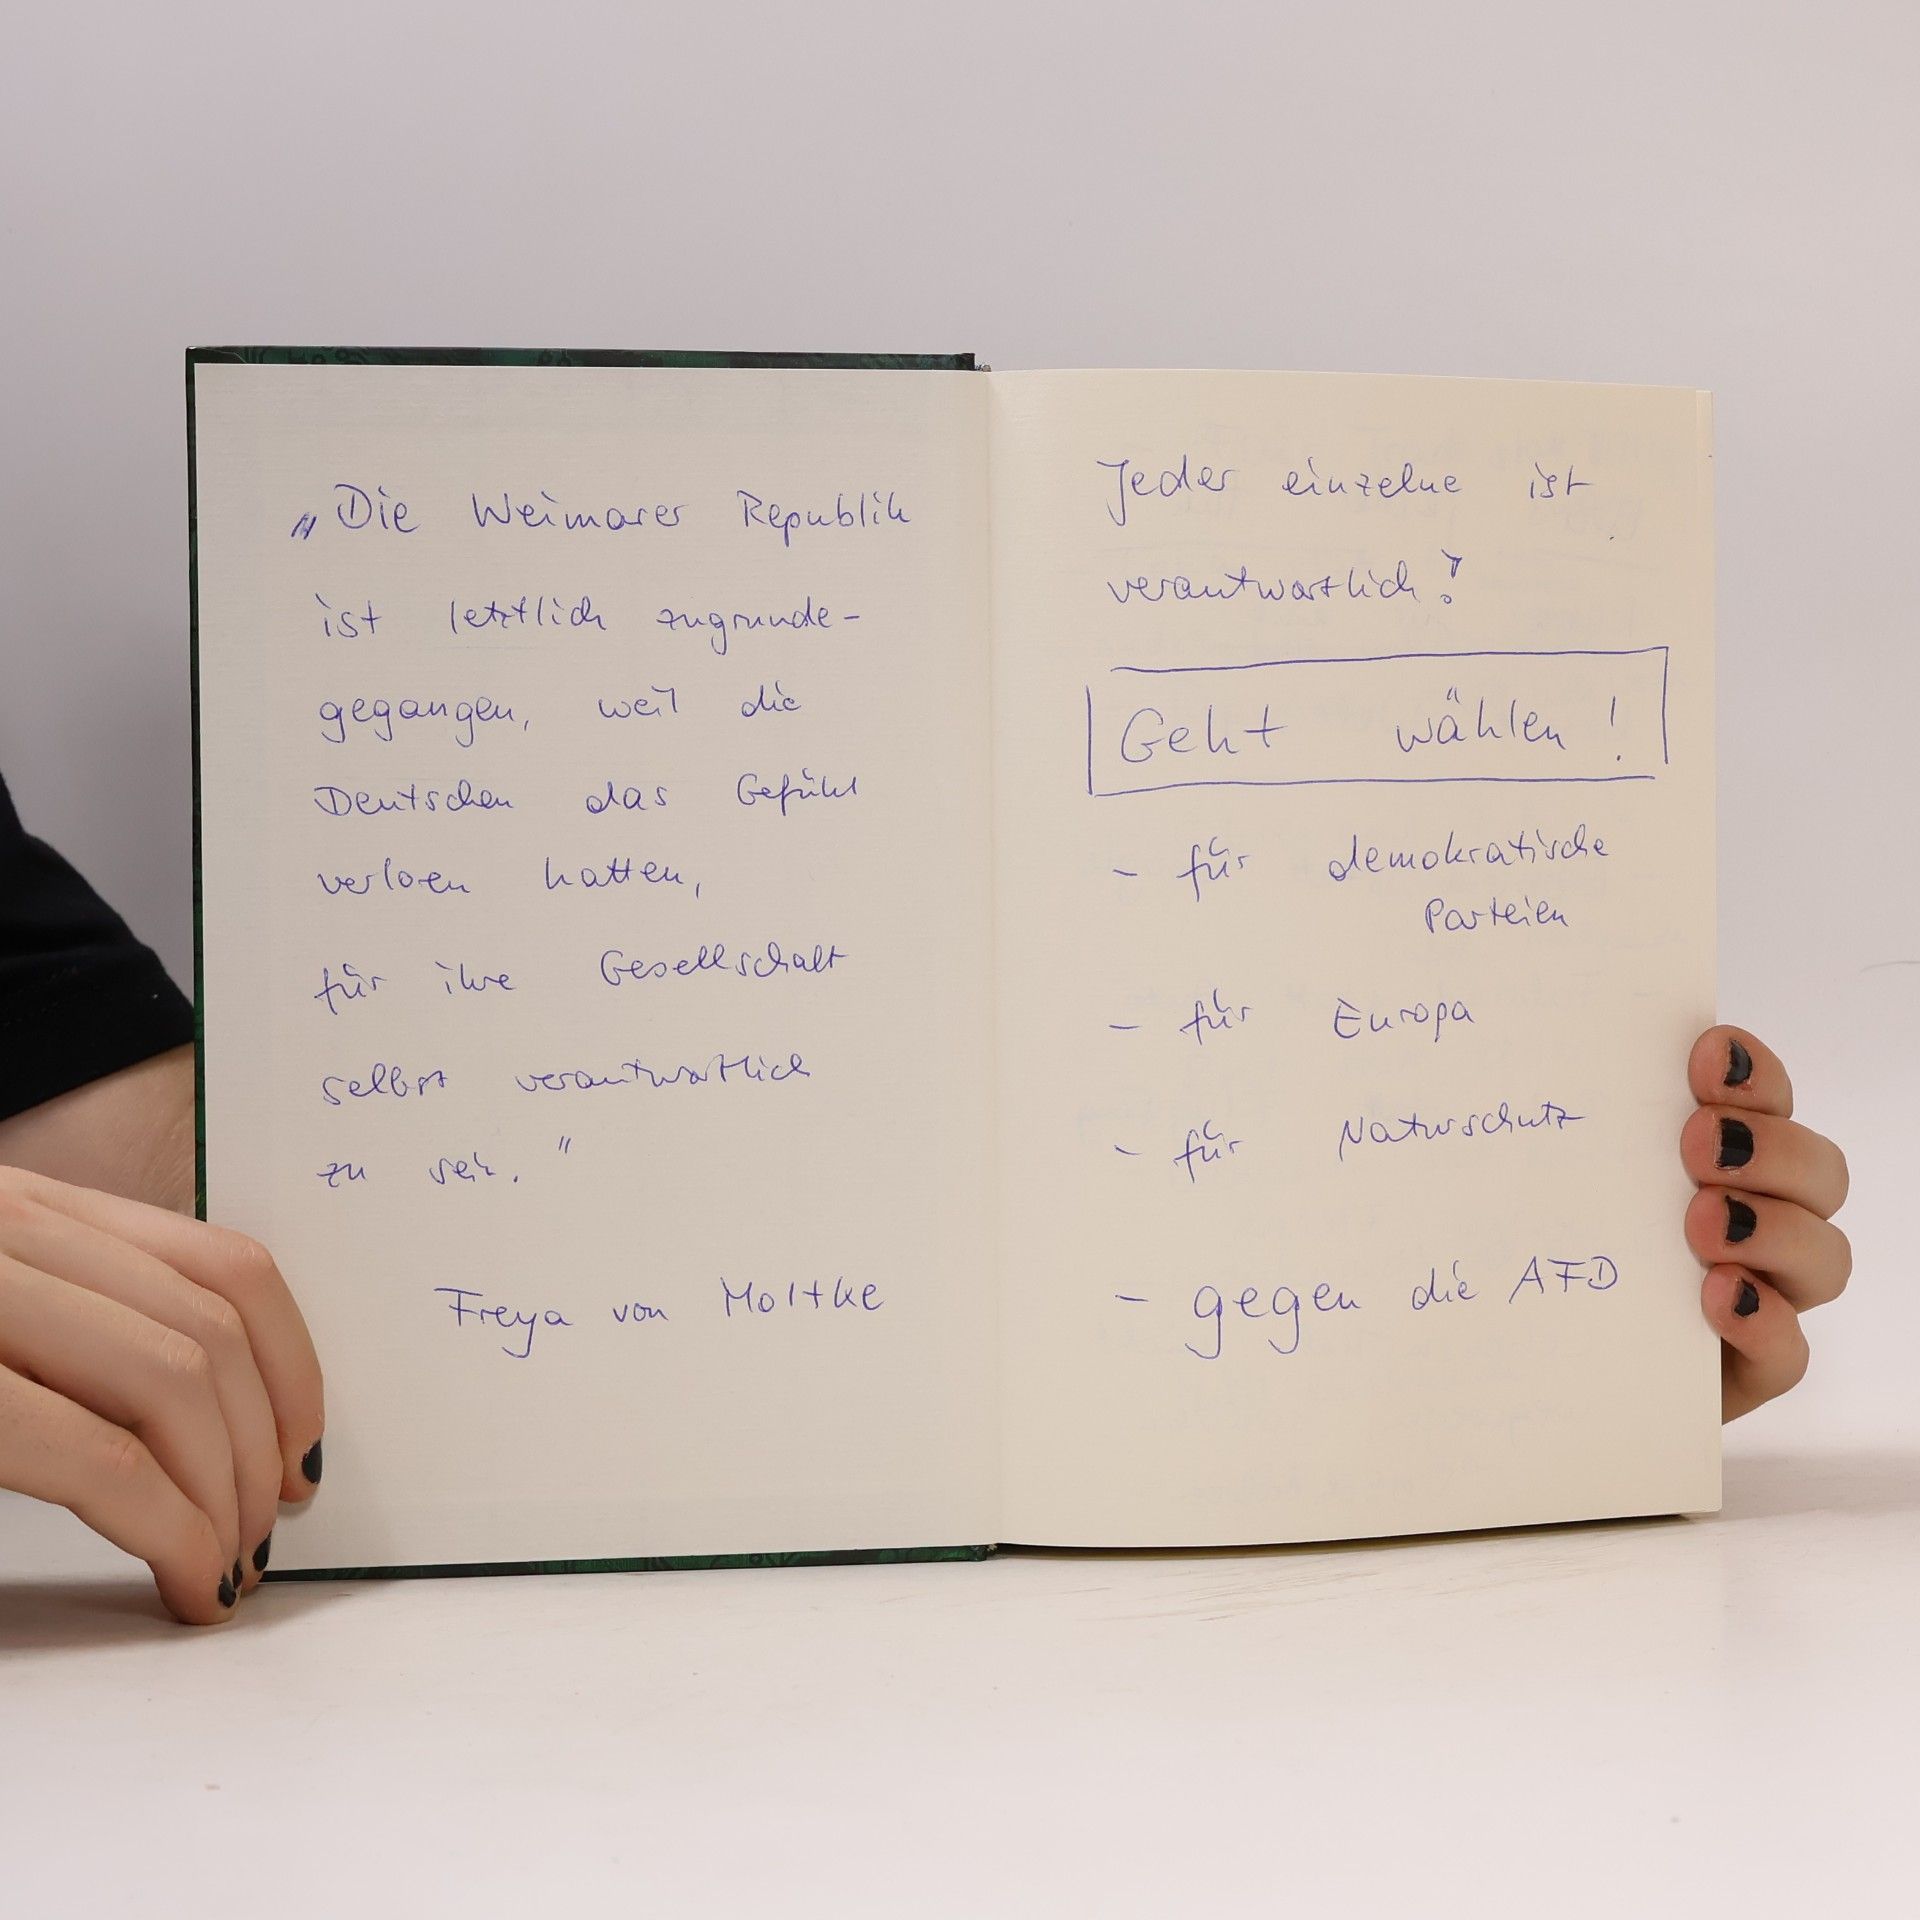 „Die Weimarer Republik
ist letztlich zugrunde-
gegangen, weil die
Deutschen das Gefühl
verloren hatten,
für ihre Gesellschaft
selbst verantwortlich
zu sein."
Freya von Moltke
Jeder einzelne ist
verantwortlich!
Geht wählen!
- für demokratische
Parteien
- für Europa
- für Naturschutz
- gegen die AFD